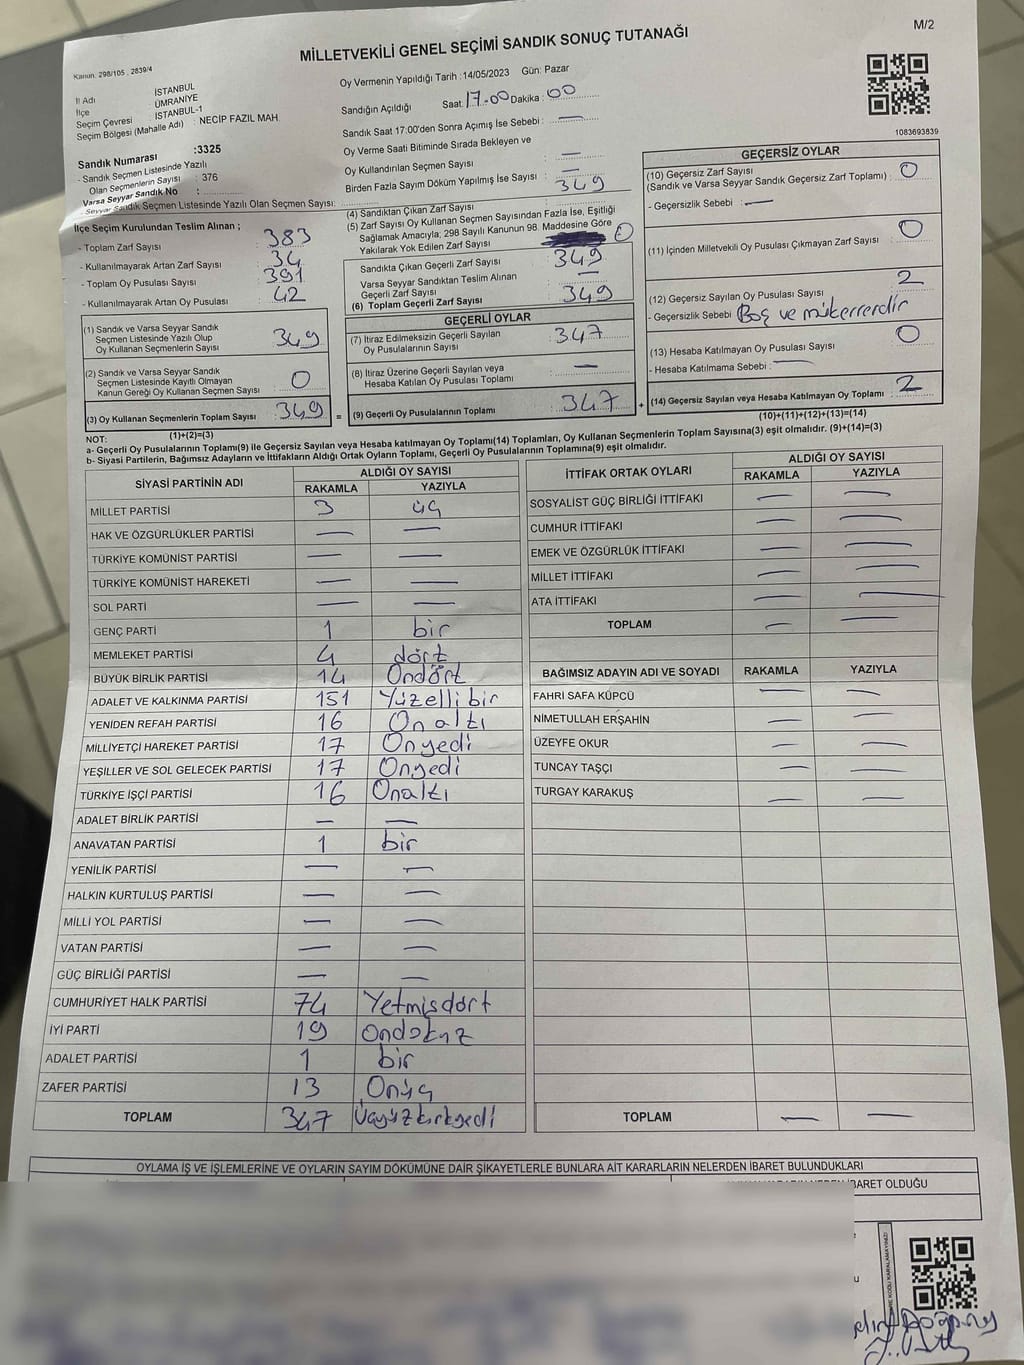 M/2
MİLLETVEKİLİ GENEL SEÇİMİ SANDIK SONUÇ TUTANAĞI
Kanun: 298/105 , 2839/4
İl Adı İSTANBUL
İlçe ÜMRANİYE
Seçim Çevresi : İSTANBUL-1
Seçim Bölgesi (Mahalle Adı) : NECİP FAZIL MAH.
Sandık Numarası :3325
- Sandık Seçmen Listesinde Yazılı
Olan Seçmenlerin Sayısı : 376
Varsa Seyyar Sandık No :
- Seyyar Sandık Seçmen Listesinde Yazılı Olan Seçmen Sayısı:
Oy Vermenin Yapıldığı Tarih :14/05/2023 Gün: Pazar
Sandığın Açıldığı Saat: 17.00 Dakika : 00
Sandık Saat 17:00'den Sonra Açımış İse Sebebi : —
Oy Verme Saati Bitiminde Sırada Bekleyen ve
Oy Kullandırılan Seçmen Sayısı : —
Birden Fazla Sayım Döküm Yapılmış İse Sayısı : —
1083693839
İlçe Seçim Kurulundan Teslim Alınan ;
- Toplam Zarf Sayısı : 383
- Kullanılmayarak Artan Zarf Sayısı : 34
- Toplam Oy Pusulası Sayısı : 391
- Kullanılmayarak Artan Oy Pusulası : 42
(1) Sandık ve Varsa Seyyar Sandık
Seçmen Listesinde Yazılı Olup
Oy Kullanan Seçmenlerin Sayısı : 349
(2) Sandık ve Varsa Seyyar Sandık
Seçmen Listesinde Kayıtlı Olmayan
Kanun Gereği Oy Kullanan Seçmen Sayısı : 0
(3) Oy Kullanan Seçmenlerin Toplam Sayısı : 349 =
(1)+(2)=(3)
(4) Sandıktan Çıkan Zarf Sayısı : 349
(5) Zarf Sayısı Oy Kullanan Seçmen Sayısından Fazla İse, Eşitliği
Sağlamak Amacıyla; 298 Sayılı Kanunun 98. Maddesine Göre
Yakılarak Yok Edilen Zarf Sayısı : 0
Sandıkta Çıkan Geçerli Zarf Sayısı : 349
Varsa Seyyar Sandıktan Teslim Alınan
Geçerli Zarf Sayısı : —
(6) Toplam Geçerli Zarf Sayısı : 349
GEÇERLİ OYLAR
(7) İtiraz Edilmeksizin Geçerli Sayılan
Oy Pusulalarının Sayısı : 347
(8) İtiraz Üzerine Geçerli Sayılan veya
Hesaba Katılan Oy Pusulası Toplamı : —
(9) Geçerli Oy Pusulalarının Toplamı : 347 +
GEÇERSİZ OYLAR
(10) Geçersiz Zarf Sayısı
(Sandık ve Varsa Seyyar Sandık Geçersiz Zarf Toplamı) : 0
- Geçersizlik Sebebi : —
(11) İçinden Milletvekili Oy Pusulası Çıkmayan Zarf Sayısı : 0
(12) Geçersiz Sayılan Oy Pusulası Sayısı : 2
- Geçersizlik Sebebi : Boş ve mükerrerdir
(13) Hesaba Katılmayan Oy Pusulası Sayısı : 0
- Hesaba Katılmama Sebebi : —
(14) Geçersiz Sayılan veya Hesaba Katılmayan Oy Toplamı : 2
(10)+(11)+(12)+(13)=(14)
NOT:
a- Geçerli Oy Pusulalarının Toplamı(9) ile Geçersiz Sayılan veya Hesaba katılmayan Oy Toplamı(14) Toplamları, Oy Kullanan Seçmenlerin Toplam Sayısına(3) eşit olmalıdır. (9)+(14)=(3)
b- Siyasi Partilerin, Bağımsız Adayların ve İttifakların Aldığı Ortak Oyların Toplamı, Geçerli Oy Pusulalarının Toplamına(9) eşit olmalıdır.
SİYASİ PARTİNİN ADI ALDIĞI OY SAYISI
RAKAMLA YAZIYLA
MİLLET PARTİSİ 3 üç
HAK VE ÖZGÜRLÜKLER PARTİSİ — —
TÜRKİYE KOMÜNİST PARTİSİ — —
TÜRKİYE KOMÜNİST HAREKETİ — —
SOL PARTİ — —
GENÇ PARTİ 1 bir
MEMLEKET PARTİSİ 4 dört
BÜYÜK BİRLİK PARTİSİ 14 Ondört
ADALET VE KALKINMA PARTİSİ 151 Yüzelli bir
YENİDEN REFAH PARTİSİ 16 On altı
MİLLİYETÇİ HAREKET PARTİSİ 17 Onyedi
YEŞİLLER VE SOL GELECEK PARTİSİ 17 Onyedi
TÜRKİYE İŞÇİ PARTİSİ 16 Onaltı
ADALET BİRLİK PARTİSİ — —
ANAVATAN PARTİSİ 1 bir
YENİLİK PARTİSİ — —
HALKIN KURTULUŞ PARTİSİ — —
MİLLİ YOL PARTİSİ — —
VATAN PARTİSİ — —
GÜÇ BİRLİĞİ PARTİSİ — —
CUMHURİYET HALK PARTİSİ 74 Yetmişdört
İYİ PARTİ 19 Ondokuz
ADALET PARTİSİ 1 bir
ZAFER PARTİSİ 13 Onüç
TOPLAM 347 Üçyüzkırkyedi
İTTİFAK ORTAK OYLARI ALDIĞI OY SAYISI
RAKAMLA YAZIYLA
SOSYALİST GÜÇ BİRLİĞİ İTTİFAKI — —
CUMHUR İTTİFAKI — —
EMEK VE ÖZGÜRLÜK İTTİFAKI — —
MİLLET İTTİFAKI — —
ATA İTTİFAKI — —
TOPLAM — —
BAĞIMSIZ ADAYIN ADI VE SOYADI RAKAMLA YAZIYLA
FAHRİ SAFA KÜPCÜ — —
NİMETULLAH ERŞAHİN — —
ÜZEYFE OKUR — —
TUNCAY TAŞÇI — —
TURGAY KARAKUŞ — —
TOPLAM — —
OYLAMA İŞ VE İŞLEMLERİNE VE OYLARIN SAYIM DÖKÜMÜNE DAİR ŞİKAYETLERLE BUNLARA AİT KARARLARIN NELERDEN İBARET BULUNDUKLARI
İBARET OLDUĞU